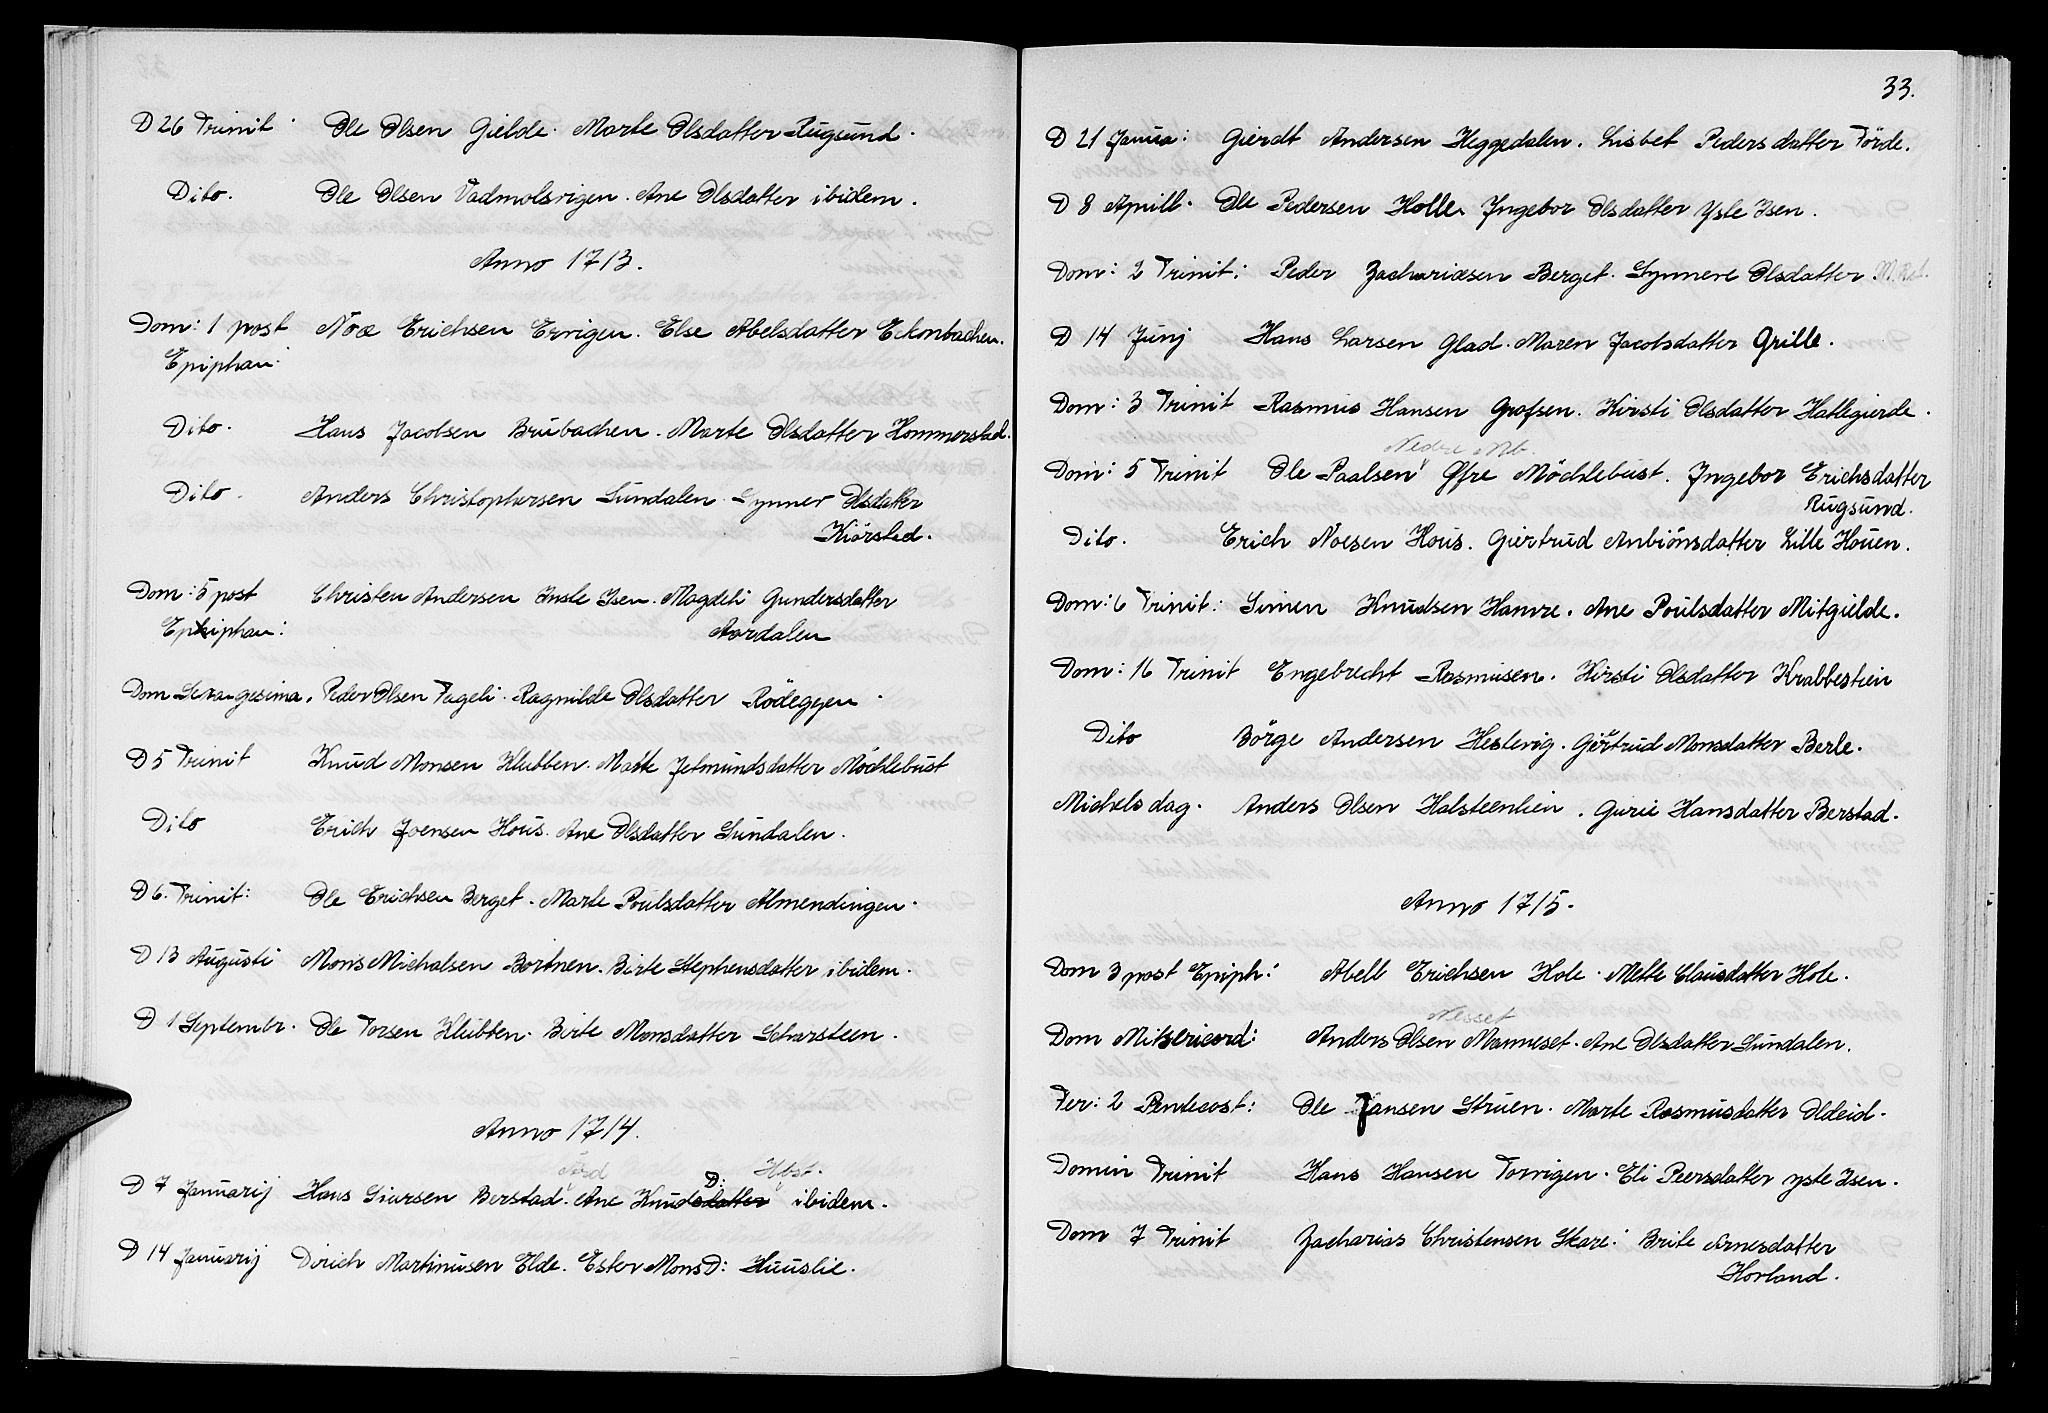 D 26 Trinit Ole Olsen Gielde. Marte Olsdatter Rugsund.
Dito. Ole Olsen Vadmolsvigen. Ane Olsdatter ibidem.
Anno 1713.
Dom: 1 post Noæ Erichsen Ervigen. Else Abelsdatter Eckonbachen.
Epiphan:
Dito. Hans Jacobsen Brubachen. Marte Olsdatter Hommerstad.
Dito. Anders Christophersen Sundalen. Synner Olsdatter
Kiörstad.
Dom: 5 post Christen Andersen Inste Isen. Magdeli Gundersdatter
Epiphan: Aardalen
Dom Sexagesima. Peder Olsen Fageli. Ragnilde Olsdatter Rödeggen
D 5 Trinit Knud Monsen Klubben. Marte Jetmundsdatter Möchlebust
Dito Erich Joensen Hous. Ane Olsdatter Sundalen.
D 6. Trinit: Ole Erichsen Berget. Marte Poulsdatter Almendingen.
D 13 Augusti Mons Michalsen Bortnen. Birte Stephensdatter ibidem.
D 1 Septembr. Ole Torsen Klubben. Birte Monsdatter Scharsteen.
Anno 1714.
D: Hbst.
D 7 Januarij Hans Siursen Berstad. Ane Knudsdatter ibidem.
D 14 Januarij Dirich Martinusen Elde. Ester Mons D: Huuslie.
33.
D 21 Janua: Gierdt Andersen Heggedalen. Lisbet Pedersdatter Förde.
D 8 Aprill. Ole Pedersen Holle. Ingebor Olsdatter Yste Isen.
Dom: 2 Trinit: Peder Zachariæsen Berget. Synnere Olsdatter
D 14 Junij Hans Larsen Glad. Maren Jacobsdatter Grille.
Dom: 3 Trinit Rasmus Hansen Grofsen. Kirsti Olsdatter Hatlegierde.
Nedre Mb.
Dom: 5 Trinit Ole Paalsen Øfre Möchlebust. Ingebor Erichsdatter
Rugsund.
Dito. Erich Noesen Hous. Giertrud Anbiönsdatter Lille Houen.
Dom: 6 Trinit: Simen Knudsen Hamre. Ane Poulsdatter Mitgielde.
Dom: 16 Trinit Engebrecht Rasmusen. Kirsti Olsdatter Krabbestien
Dito Börge Andersen Heslevig. Giertrud Monsdatter Berle.
Michels dag. Anders Olsen Halsteenlien. Gurie Hansdatter Berstad.
Anno 1715.
Dom 3 post Epiph: Abell Erichsen Hole. Mette Clausdatter Hole.
Nesset
Dom Mitsericord: Anders Olsen Manneset. Ane Olsdatter Sundalen.
Fer: 2 Pentecost: Ole Jansen Struen. Marte Rasmusdatter Oldeid.
Domin Trinit Hans Hansen Torvigen. Eli Peersdatter yste Isen.
Dom 7 Trinit Zacharias Christensen Skare. Brite Arnesdatter
Horland.